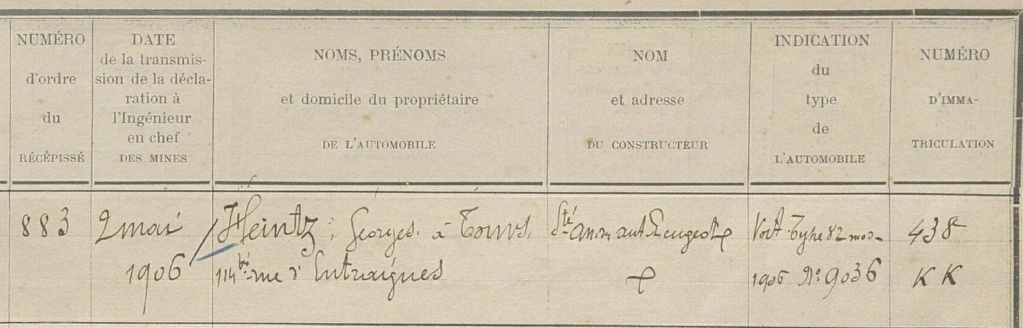 NUMÉRO
d'ordre
du
RÉCÉPISSÉ
DATE
de la transmis-
sion de la décla-
ration à
l'Ingénieur
en chef
DES MINES
NOMS, PRÉNOMS
et domicile du propriétaire
DE L'AUTOMOBILE
NOM
et adresse
DU CONSTRUCTEUR
INDICATION
du
type
de
L'AUTOMOBILE
NUMÉRO
D'IMMA-
TRICULATION
883
2 mai
1906
Heintz, Georges. à Tours.
114 bis rue d'Entraigues
Sté an. aut Peugeot
Voit Type 82 mod
1906 No 9036
438
KK